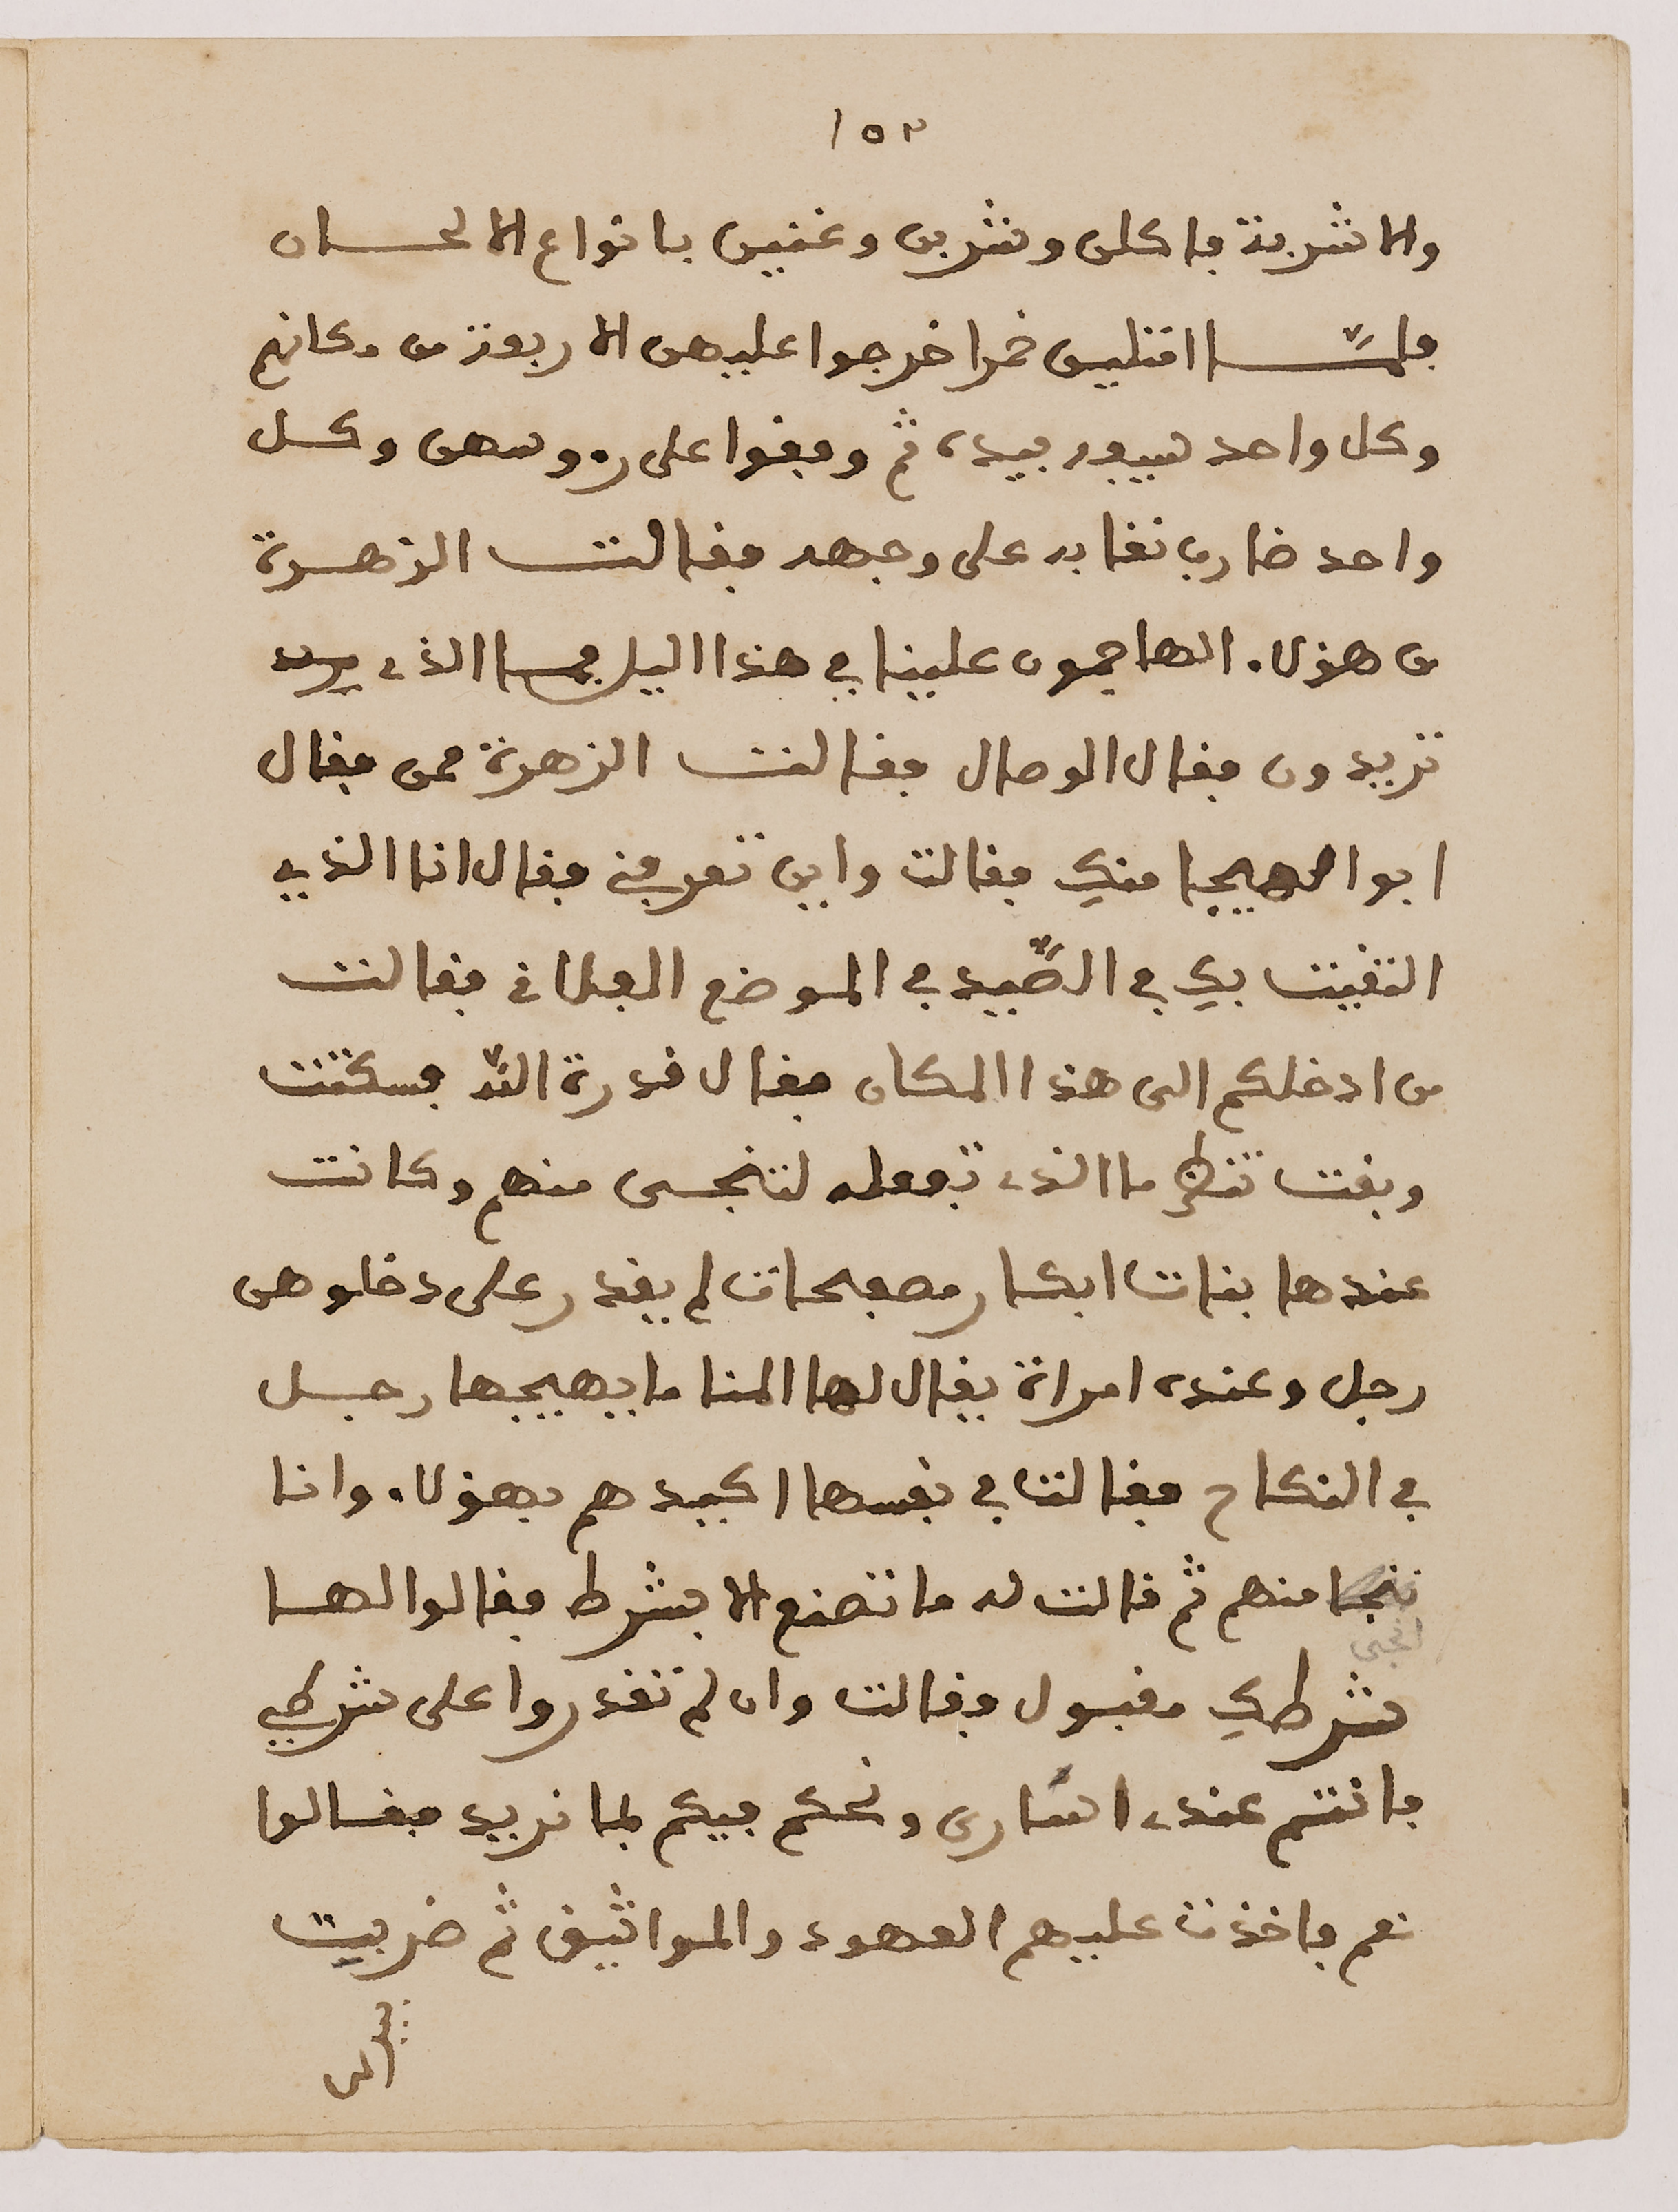 ١٥٣
والاشربة فاكلن وشربن وغنين بانواع الالحان
فلمّا امتلين خمرا خرجوا عليهن الاربعة من مكانهم
وكل واحد سيفه بيده ثم وقفوا على روسهن وكل
واحد ضارب نقابه على وجهه فقالت الزهرة
من هولاء الهاجمون علينا في هذا اليل فما الذي
تريدون فقال الوصال فقالت الزهرة ممن فقال
ابوا الهيجا منكِ فقالت واين تعرفني فقال انا الذي
التقيت بكِ في الصّيد في الموضع الفلاني فقالت
من ادخلكم الى هذا المكان فقال قدرة اللّه فسكتت
وبقت تنظر ما الذي تفعله لتنجى منهم وكانت
عندها بنات ابكار مصفحات لم يقدر على دخلوهن
رجل وعنده امراة يقال لها المنا ما يهيجها رجل
في النكاح فقالت في نفسها اكيدهم بهولاء وانا
ننجا منهم ثم قالت له ما نصنع الا بشرط فقالوا لها
انجى
شرطكِ مقبول فقالت وان لم تقدروا على شرطي
فانتم عندي اسَارى ونحكم فيكم بما نريد فقالوا
نعم فاخذت عليهم العهود والمواثيق ثم ضربت
بيدها على